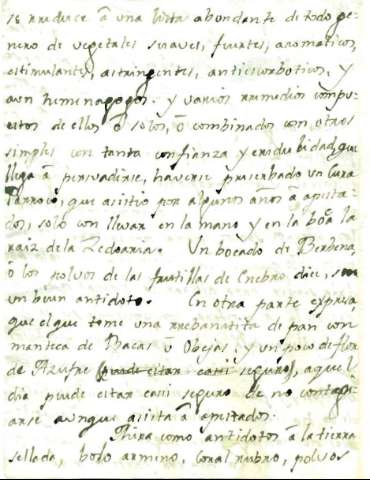 se reduce â una lista abundante de todo ge-
nero de vegetales suaves, fuertes, aromaticos,
estimulantes, astringentes, antiescorbuticos, y
aun hemenagogos. y varios remedios compu-
estos de ellos ô solos, ô combinados con otros
simples con tanta confianza y credulidad, que
llega â persuadirse, haverse preservado un Cura
Parroco, que asistio por algunos años â apesta-
dos, solo con llevar en la mano y en la boca la
raiz de la Zedoaria. Un bocado de Berbena,
ô los polvos de las frutillas de Enebro dice, son
un buen antidoto. En otra parte expresa
que el que tome una rebanadita de pan con
manteca de Bacas û Obejas, y un poco de flor
de Azufre (puede estar casi seguro), aquel
dia puede estar casi seguro de no contagi-
arse aunque asista â apestados.
Mira como antidotos â la tierra
sellada, bolo armeno, coral rubro, polvos